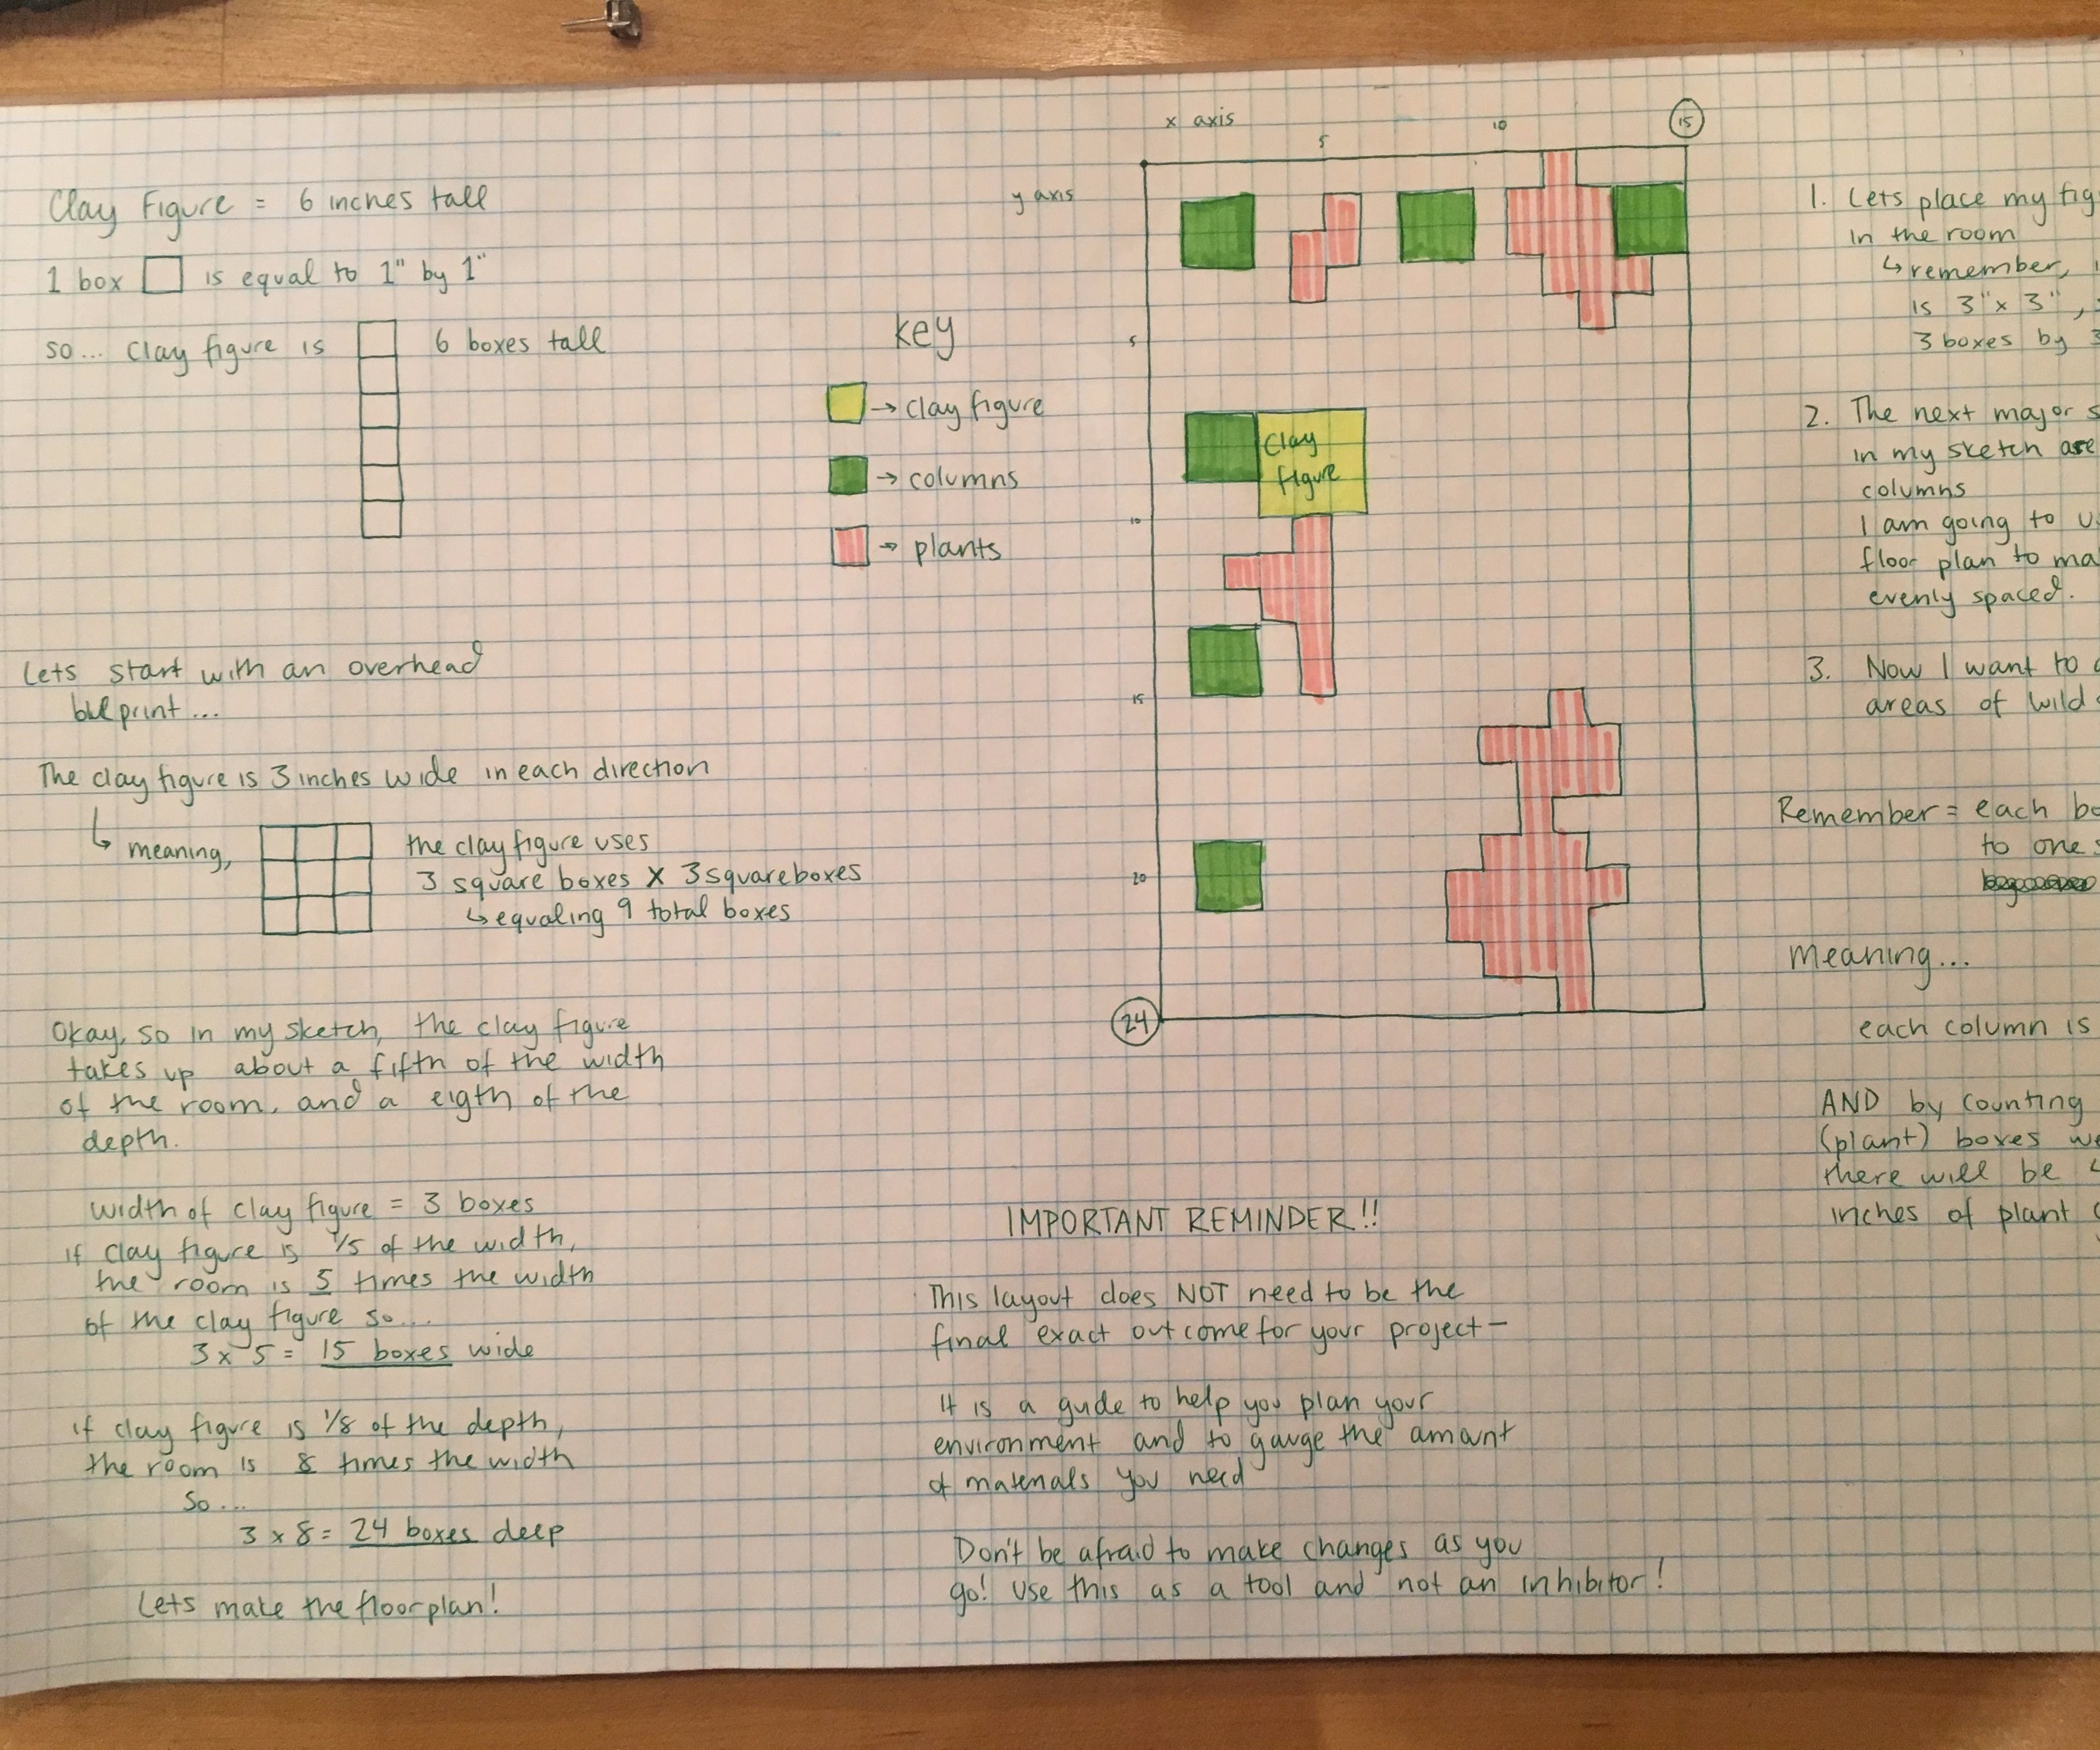 Clay Figure = 6 inches tall
1 box is equal to 1" by 1"
so... clay figure is 6 boxes tall
Lets start with an overhead
The clay figure is 3 inches wide in each direction
↳ meaning,
the clay figure uses
3 square boxes x 3 square boxes
↳ equaling 9 total boxes
Okay, so in my sketch, the clay figure
takes up about a fifth of the width
of the room, and a eigth of the
depth.
width of clay figure = 3 boxes
if clay figure is 1/5 of the width,
the room is 5 times the width
of the clay figure so...
3 x 5 = 15 boxes wide
if clay figure is 1/8 of the depth,
the room is 8 times the width
so...
3 x 8 = 24 boxes deep
Lets make the floorplan!
key
→ clay figure
→ columns
→ plants
x axis
5
10
15
y axis
5
10
15
20
24
clay
figure
IMPORTANT REMINDER!!
This layout does NOT need to be the
final exact outcome for your project-
It is a guide to help you plan your
environment and to gauge the amount
of materials you need
Don't be afraid to make changes as you
go! Use this as a tool and not an inhibitor!
1. Lets place my fig
in the room
↳ remember,
is 3" x 3",
3 boxes by 3
2. The next major s
in my sketch are
columns
I am going to u
floor plan to ma
evenly spaced.
3. Now I want to
areas of wild
Remember = each bo
to one
meaning...
each column is
AND by counting
(plant) boxes we
there will be
inches of plant